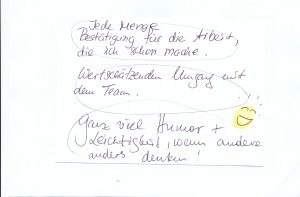 Jede Menge
Bestätigung für die Arbeit,
die ich schon mache.
Wertschätzenden Umgang mit
dem Team.
Ganz viel Humor +
Leichtigkeit, wenn andere
anders denken!